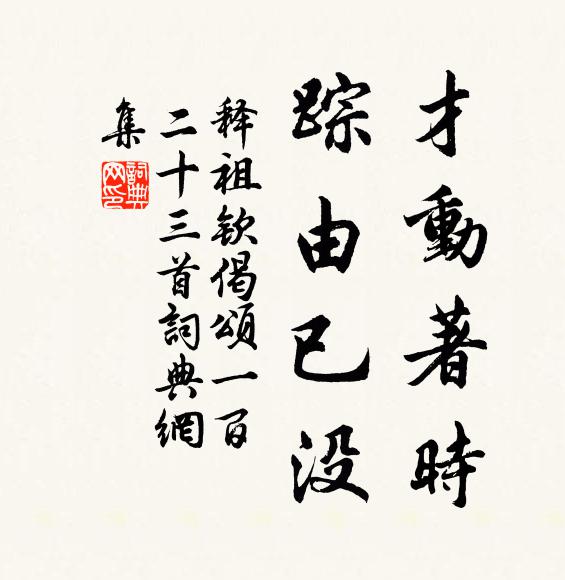 才動著時
踪由已没
释祖欽偈頌一百
二十三首詞典網
集
詞典網印